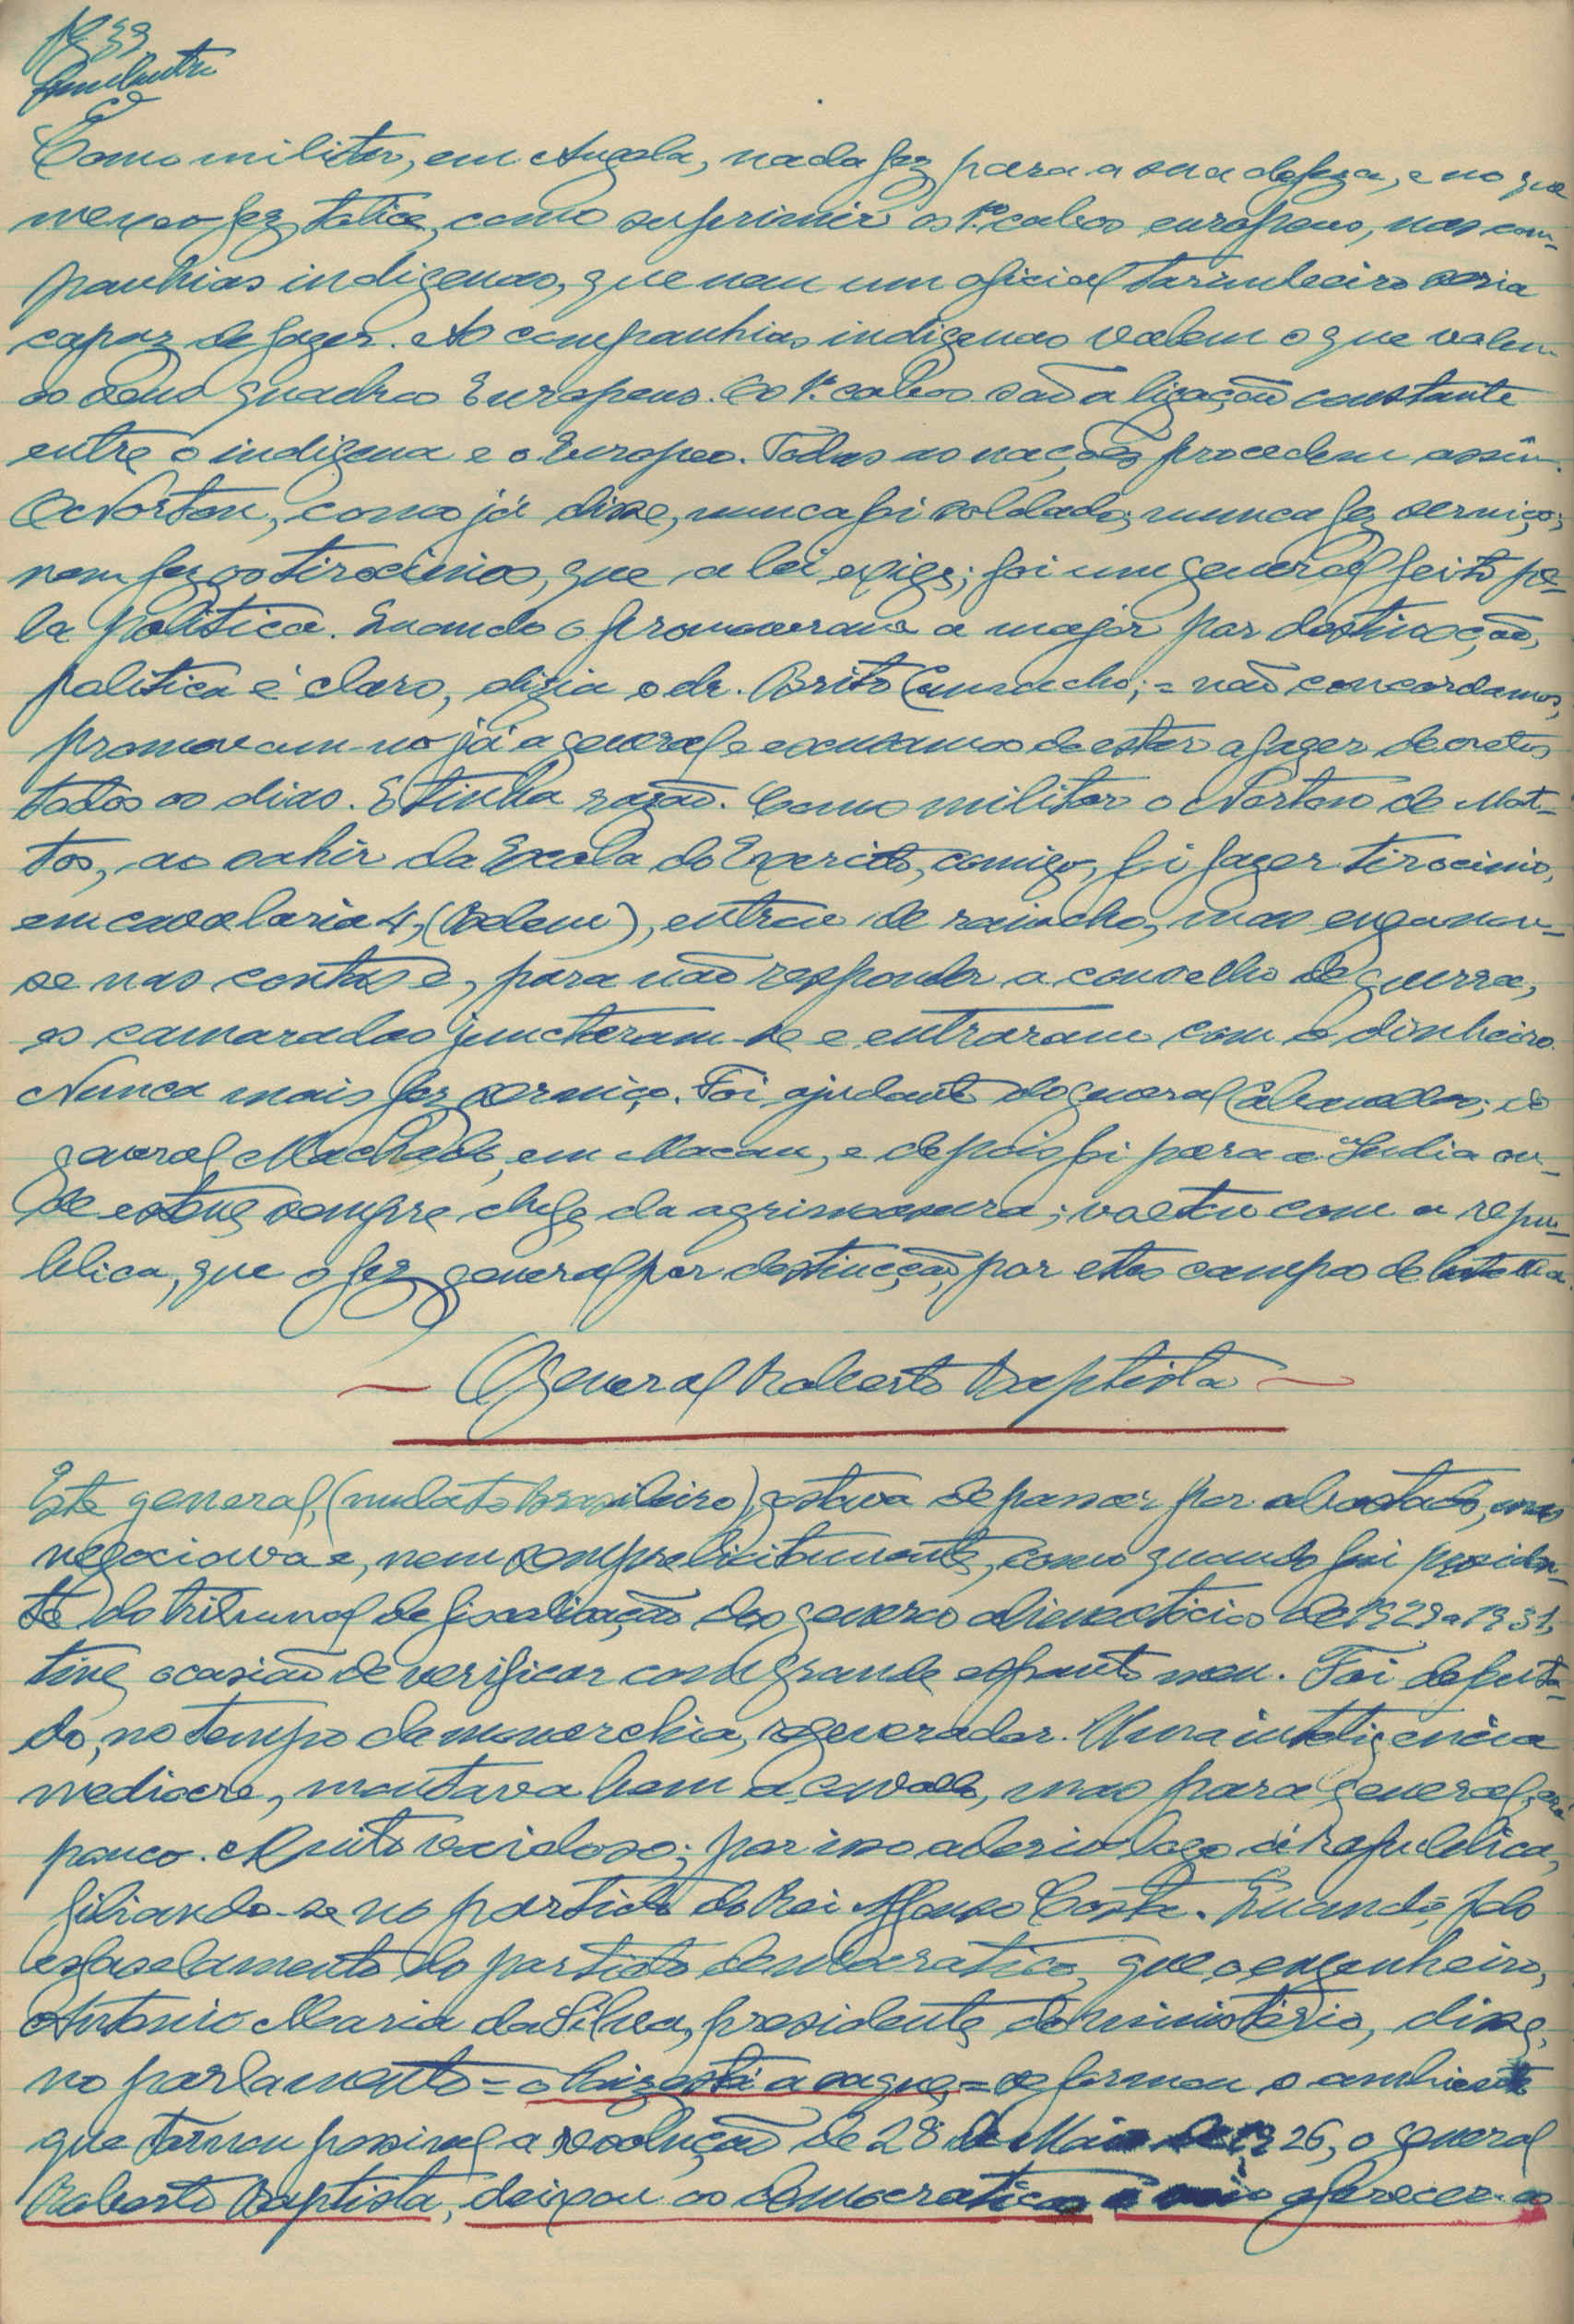 fl 33
Como militar, em Angola, nada fez para a sua defeza, e no que
mexeo fez tolice, como suprimir os 1.os cabos europeus, nas com-
panhias indigenas, que nem um oficial tarimbeiro seria
capaz de fazer. As companhias indigenas valem o que valem
os seus quadros Europeus. Os 1.os cabos são a ligação constante
entre o indigena e o Europeo. Todas as nações procedem assim.
O Norton, como já disse, nunca foi soldado; nunca fez serviço;
nem fez os tirocinios, que a lei exige; foi um general feito pe-
la politica. Quando o promoveram a major por destinção,
politica é claro, dizia o dr. Brito Camacho; = não concordamos,
promovam-no já a general e escusamos de estar a fazer decretos
todos os dias. E tinha razão. Como militar o Norton de Mat-
tos, ao sahir da Escola do Exercito, comigo, foi fazer tirocinio,
em cavalaria 4, (Belem), entrou de rancho, mas enganou-
se nas contas e, para não responder a conselho de guerra,
os camaradas junctaram-se e entraram com o dinheiro.
Nunca mais fez serviço. Foi ajudante do general ; do
general Machado, em Macau, e depois foi para a India on-
de esteve sempre chefe da agrimensura; voltou com a repu-
blica, que o fez general por destincção, por estes campos de batalha.
~ O general Roberto Baptista ~
Este general, (mulato Brasileiro), gostava de passar por abastado, mas
negociava e, nem sempre licitamente, como quando fui presiden-
te do tribunal de fiscalisação dos generos alimenticios de 1929 a 1931,
tive ocasião de verificar com grande espanto meu. Foi deputa-
do, no tempo da monarchia, regenerador. Uma inteligencia
mediocre, montava bem a cavalo, mas para general, era
pouco. Muito vaidoso; por isso aderio logo á Republica,
filiando-se no partido do Rei Affonso Costa. Quando, do
esfacelamento do partido democratico, que o engenheiro,
Antonio Maria da Silva, presidente do ministerio, disse,
no parlamento = o Paiz está a saque, = se formou o ambiente
que tornou possivel a revolução de 28 de Maio de 1926, o general
Roberto Baptista, deixou os democraticos e veio oferecer-se